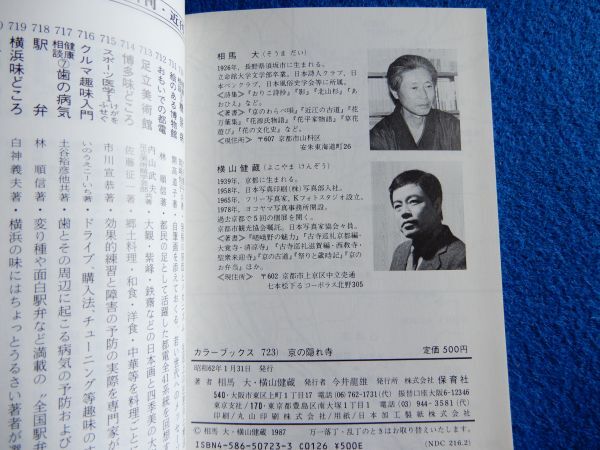 相馬 大(そうま だい)
1926年、長野県須坂市に生まれる。
立命館大学文学部卒業。日本詩人クラブ、日
本ペンクラブ、日本風俗史学会等に所属。
〈詩集〉『ものに影』『北山杉』『あ
〈著書〉『京のわらべ唄』『近江の古道』『花
万葉集』『花源氏物語』『花平家物語』『京花
遊び』『花の文化史』など。
〈現住所〉〒607 京都市山科区
安朱東海道町26
横山健蔵(よこやま けんぞう)
1939年、京都に生まれる。
1958年、日本写真印刷(株)写真部入社。
1965年、フリー写真家、Kフォトスタジオ設立。
1978年、ヨコヤマ写真事務所開設。
過去京都で5回の個展を開く。
京都市観光協会嘱託。日本写真家協会々員。
〈著書〉『嵯峨野の魅力』『古寺巡礼京都編・
大覚寺・清凉寺』『古寺巡礼滋賀編・西教寺・
聖衆来迎寺』『京の古道』『祭りと歳時記』『京の
お弁当』ほか。
〈現住所〉〒602 京都市上京区中立売通
七本松下るコーポラス北野305
カラーブックス 723) 京の隠れ寺 定価 500円
昭和62年1月31日 発行
著者 相馬 大・横山健蔵 発行者 今井龍雄 発行所 株式会社 保育社
540・大阪市東区上町1丁目
東京支社/170・東京都豊島区南大塚1丁目
印刷/丸山印刷株式会社/用紙/日本加工製紙株式会社
© 相馬 大・横山健蔵 1987 万一落丁・乱丁のときはお取りかえいたします。
ISBN4-586-50723-3 C0126 ¥500E (NDC 216.2)
絵のある博物館
712 おもいでの都電 林 順信著 都民の足として活躍した都電全41系統を回想す
713 足立美術館 内山武夫著 大観・紫峰・鉄斎などの日本画と四季美の大
714 博多味どころ 佐藤征一著 郷土料理・和食・洋食・中華等を料理ごとに
715 スポーツ医学 けがをふせぐ 市川宣恭著 効果的練習と障害の予防の実際を専門家が
716 クルマ趣味入門 いのうえこーいち著 ドライブ、購入法、チューニング等趣味の
717 健康相談⑦ 歯の病気 土谷裕彦他共著 歯とその周辺に起こる病気の予防および
718 駅弁 林 順信著 変り種や面白駅弁など満載の“全国駅弁
719 横浜味どころ 白神義夫著 横浜の味にはちょっとうるさい著者が選